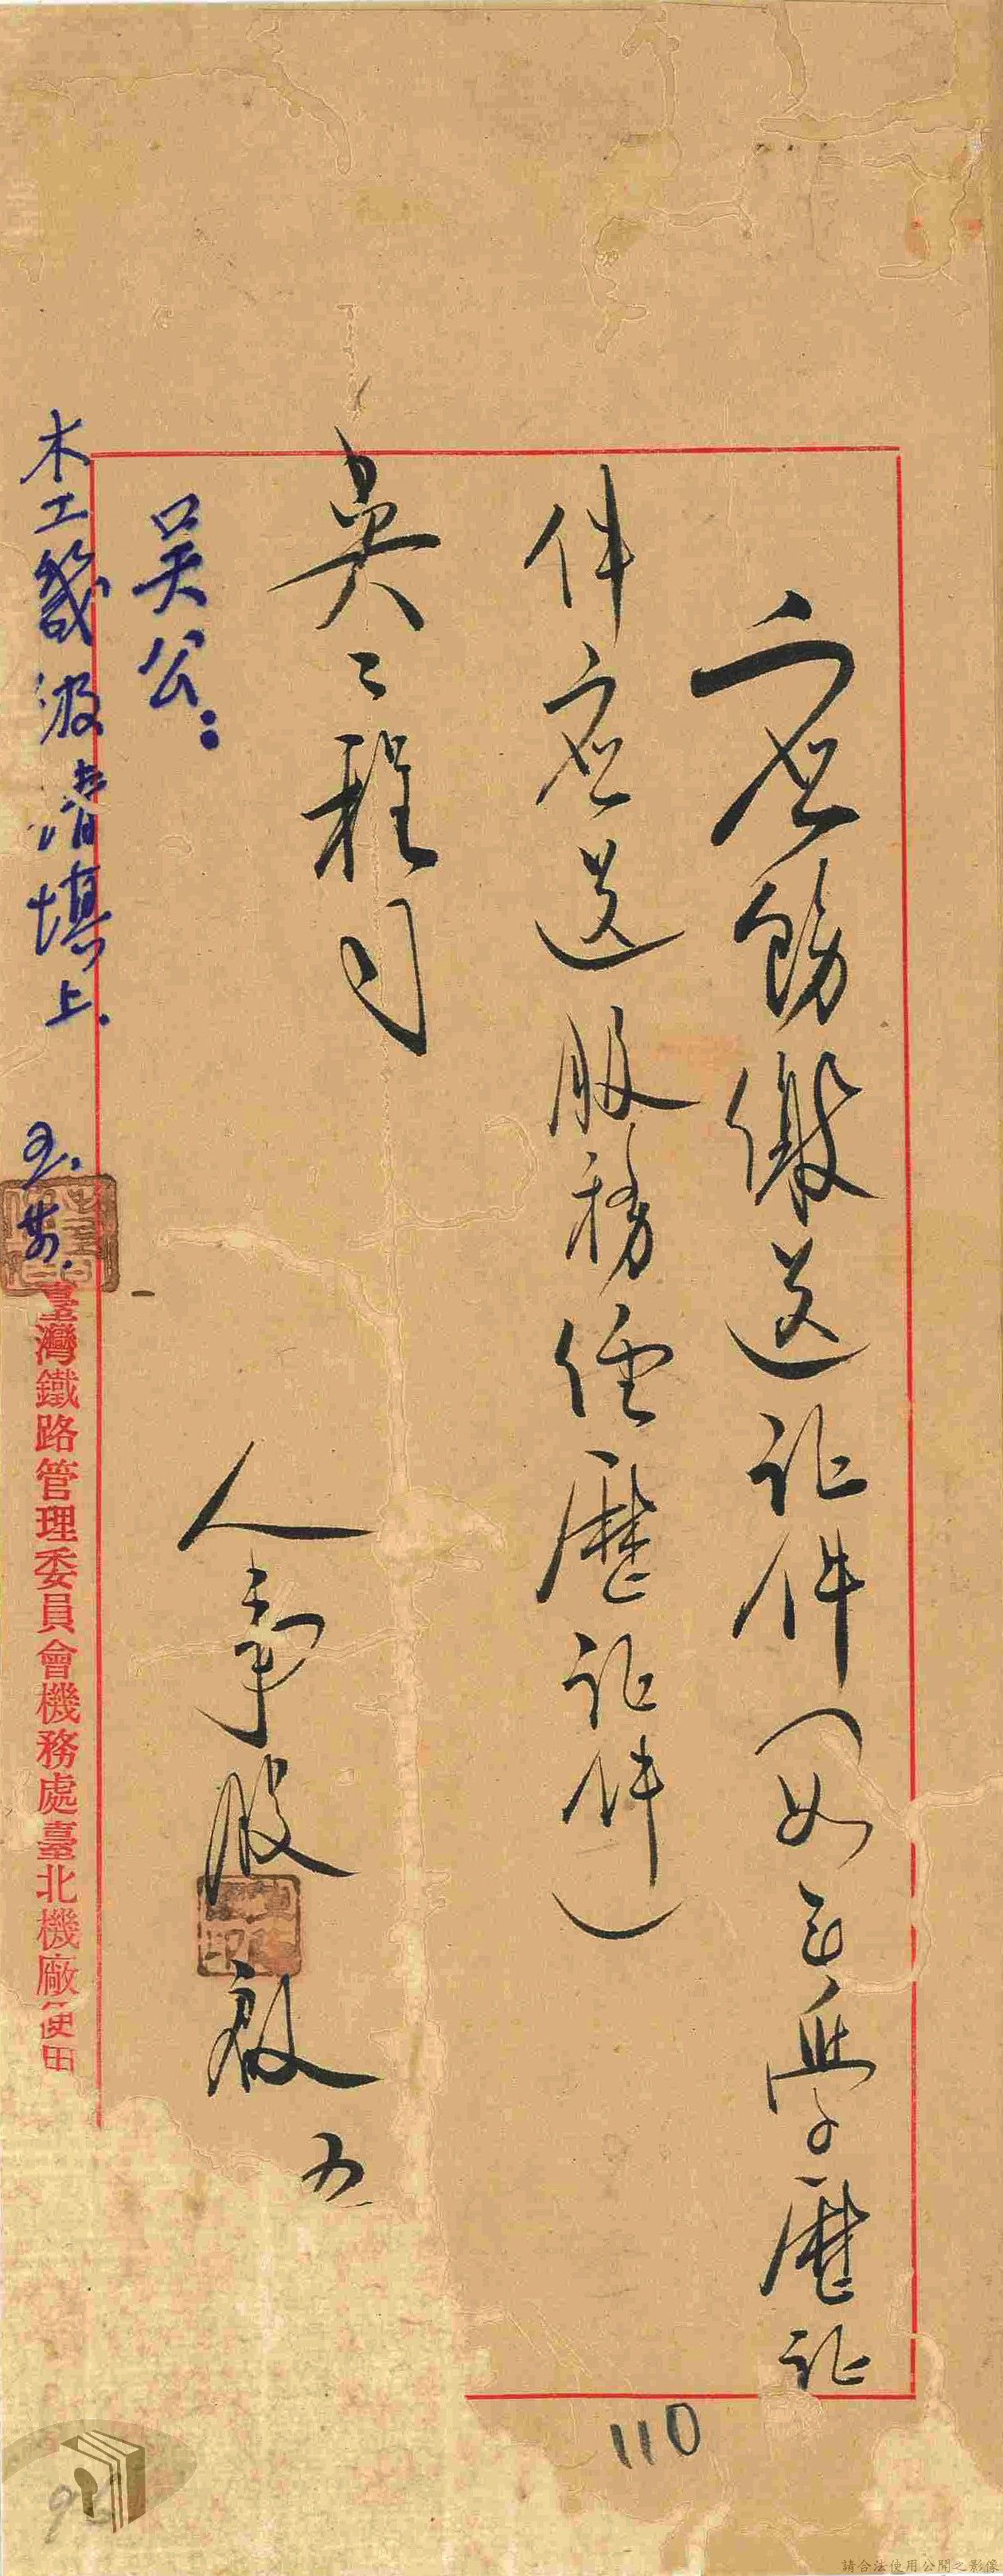 应飭繳送証件（如无學歷証
件应送服務經歷証件）
吳工程司
人事股 啟 九
吳公：
木工幾級請填上.
臺灣鐵路管理委員會機務處臺北機廠便用
110
96
請合法使用公開之影像